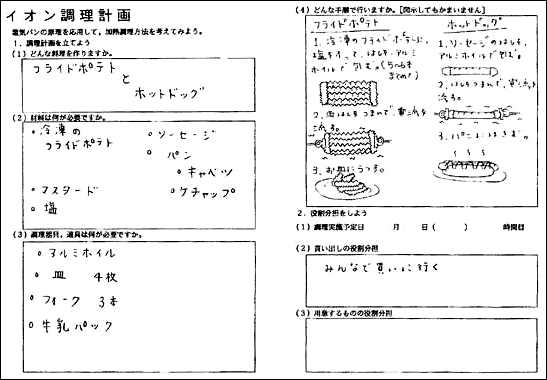 イオン調理計画
電気パンの原理を応用して，加熱調理方法を考えてみよう。
1．調理計画を立てよう
(1) どんな料理を作りますか。
フライドポテト
と
ホットドッグ
(2) 材料は何が必要ですか。
○冷凍の
フライドポテト
○マスタード
○塩
○ソーセージ
○パン
○キャベツ
○ケチャップ
(3) 調理器具，道具は何が必要ですか。
○アルミホイル
○皿 4枚
○フォーク 3本
○牛乳パック
(4) どんな手順で行いますか。[図示してもかまいません]
フライドポテト
1，冷凍のフライドポテトに，
塩をふって，はしを，アルミ
ホイルで包む。
2，両はしをつまんで，電流を
流す。
3，お皿にうつす。
ホットドッグ
1，ソーセージのはしを，
アルミホイルで包む。
2，はしをつまんで，電流を
流す。
3，パンにはさむ。
2．役割分担をしよう
(1) 調理実施予定日 月 日（ ） 時間目
(2) 買い出しの役割分担
みんなで買いに行く
(3) 用意するものの役割分担